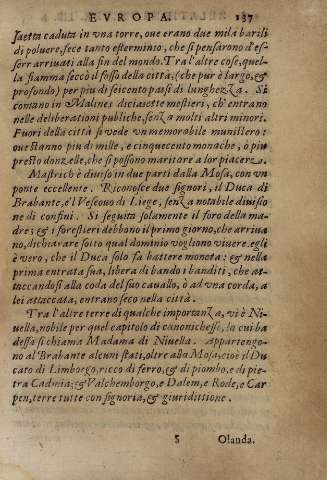 EVROPA. 187
saetta caduta in vna torre, oue erano due mila barili
di poluere, fece tanto esterminio, che si pensarono d'es-
ser arriuati alla fin del mondo. Tra l'altre cose, quel-
la fiamma seccò il fosso della città, (che pur è largo, &
profondo) per piu di seicento passi di lunghezza. Si
contano in Malines diciasette mestieri, ch'entrano
nelle deliberationi publiche, senza molti altri minori.
Fuori della città si vede vn memorabile munistero:
oue stanno piu di mille, e cinquecento monache, ò piu
presto donzelle, che si possono maritare a lor piacere.
Mastrich è diuiso in due parti dalla Mosa, con vn
ponte eccellente. Riconosce due signori, il Duca di
Brabante, e'l Vescouo di Liege, senza notabile diuisio
ne di confini. Si seguita solamente il foro della ma-
dre; & i forestieri debbono il primo giorno, che arriua
no, dichiarare sotto qual dominio vogliono viuere. egli
è vero, che il Duca solo fa battere moneta: & nella
prima entrata sua, libera di bando i banditi, che at-
taccandosi alla coda del suo cauallo, ò ad vna corda, a
lei attaccata, entrano seco nella città.
Tra l'altre terre di qualche importanza, vi è Ni-
uella, nobile per quel capitolo di canonichesse, la cui ba
dessa si chiama Madama di Niuella. Appartengo-
no al Brabante alcuni stati, oltre alla Mosa, cioè il Du
cato di Limborgo, ricco di ferro, & di piombo, e di pie-
tra Cadmia; & Valchemborgo, e Dalem, e Rode, e Car
pen, terre tutte con signoria, & giuridittione.
S Olanda.